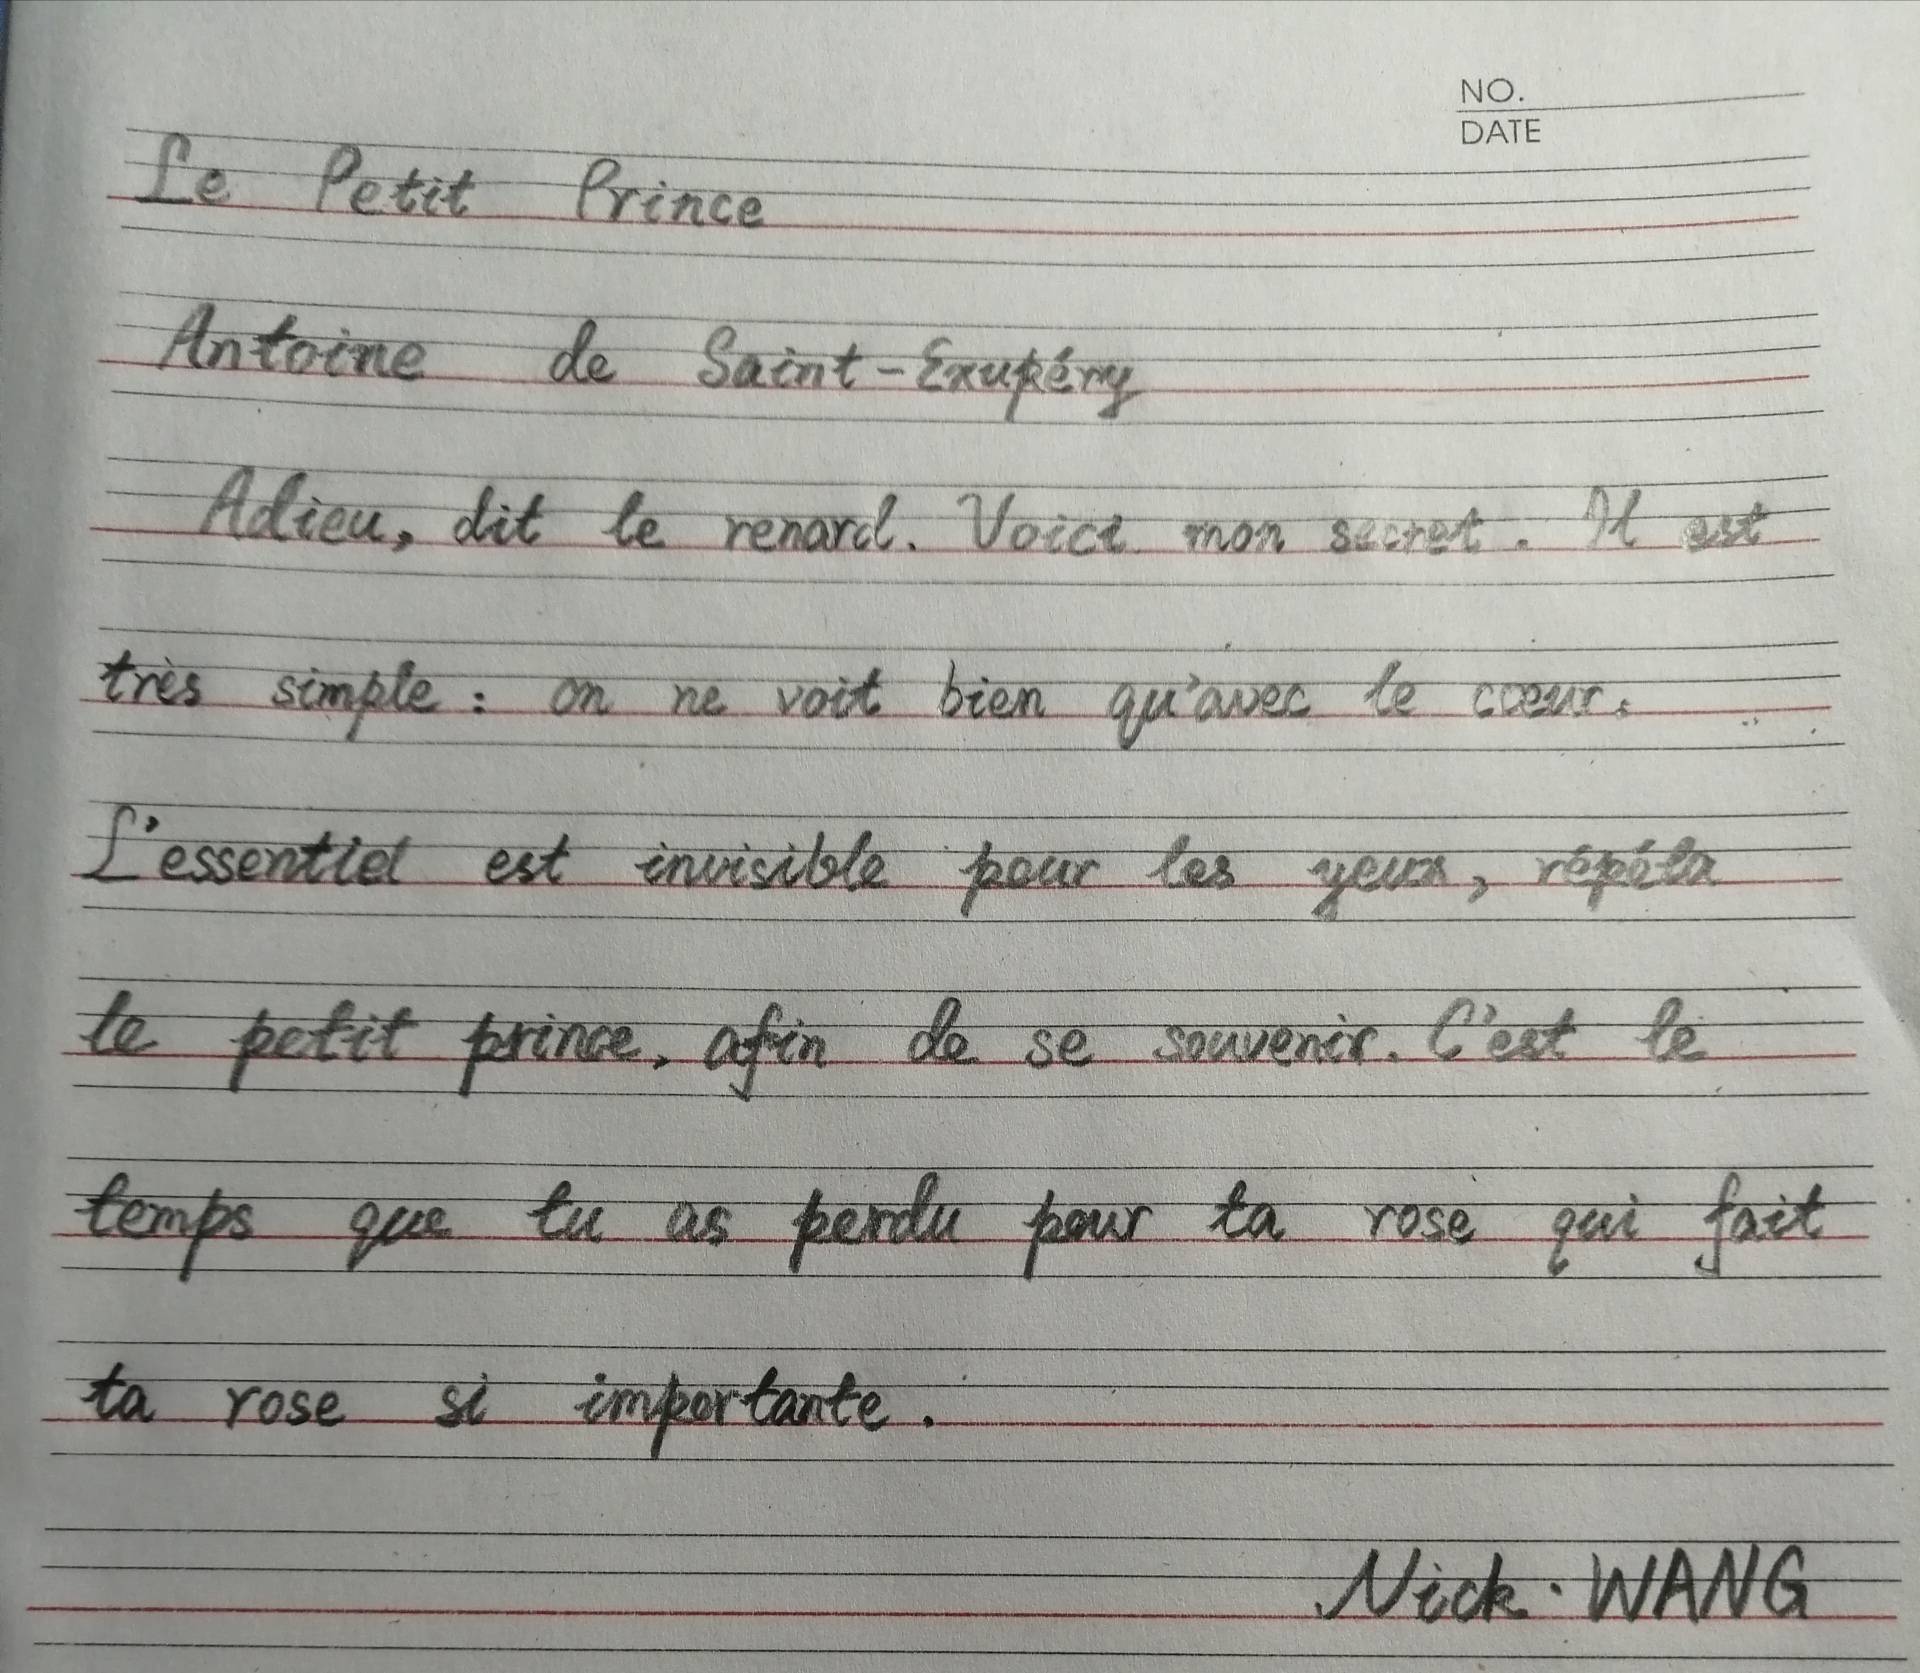 NO.
DATE
Le Petit Prince
Antoine de Saint-Exupéry
Adieu, dit le renard. Voici mon secret. Il est
très simple : on ne voit bien qu'avec le cœur.
L'essentiel est invisible pour les yeux, répéta
le petit prince, afin de se souvenir. C'est le
temps que tu as perdu pour ta rose qui fait
ta rose si importante.
Nick · WANG